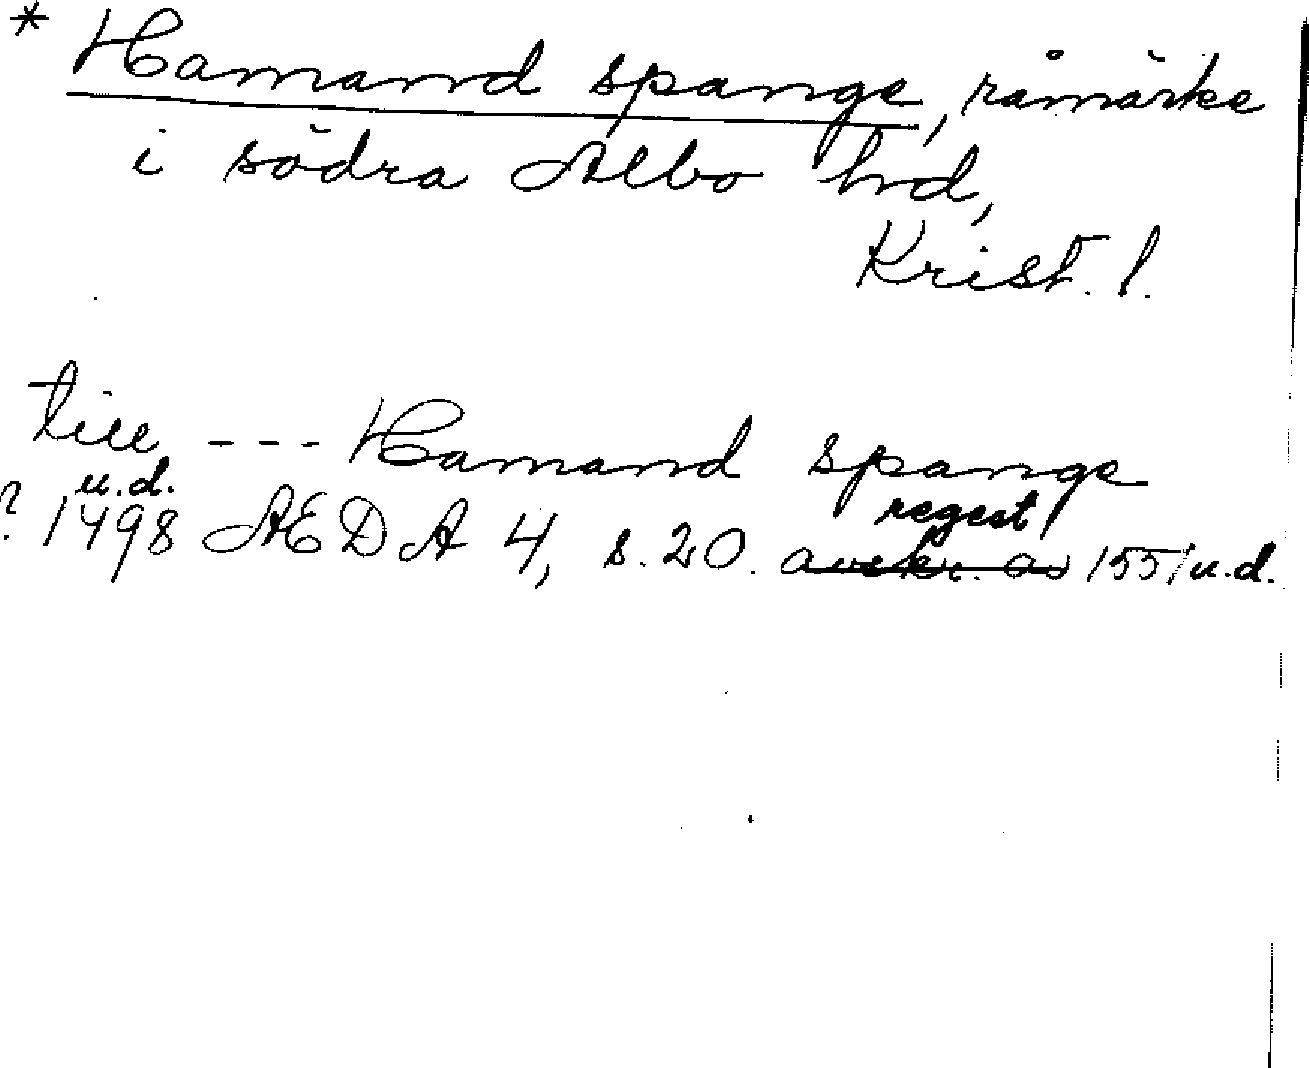 * Hamand spange, råmärke
i södra Albo hd,
Krist. l.
till --- Hamand spange
u.d. regest
? 1498 ÆDA 4, s. 20. avskr. av 1551 u.d.